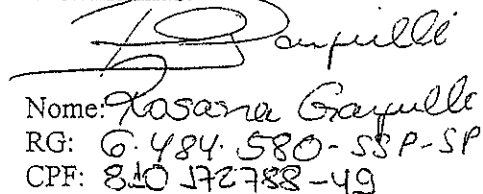 Nome: Rosana
RG: 6.484.580-SSP-SP
CPF: 810 172788-49